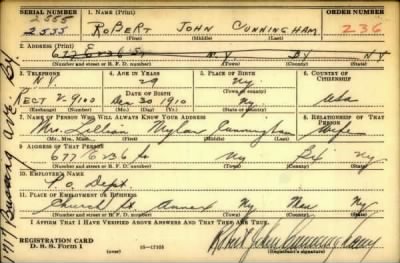 SERIAL NUMBER
1. NAME (Print)
ORDER NUMBER
2555
2555
ROBERT JOHN CUNNINGHAM
236
(First) (Middle) (Last)
2. ADDRESS (Print)
677 E 236 St N.Y. BX N.Y.
(Number and street or R. F. D. number) (Town) (County) (State)
3. TELEPHONE
4. AGE IN YEARS
5. PLACE OF BIRTH
6. COUNTRY OF CITIZENSHIP
N.Y.
29
Ny
DATE OF BIRTH
2-9100
Dec 30 1910
Ny
Usa
(Exchange) (Number)
(Mo.) (Day) (Yr.)
(State or country)
7. NAME OF PERSON WHO WILL ALWAYS KNOW YOUR ADDRESS
8. RELATIONSHIP OF THAT PERSON
Mrs. Lillian Cunningham Wife
(Mr., Mrs., Miss) (First) (Middle) (Last)
9. ADDRESS OF THAT PERSON
677 E 236 St Ny Bx Ny
(Number and street or R. F. D. number) (Town) (County) (State)
10. EMPLOYER'S NAME
P.O. Dept.
11. PLACE OF EMPLOYMENT OR BUSINESS
Church St Annex Ny Man Ny
(Number and street or R. F. D. number) (Town) (County) (State)
I AFFIRM THAT I HAVE VERIFIED ABOVE ANSWERS AND THAT THEY ARE TRUE.
REGISTRATION CARD
D. S. S. Form 1
(over)
Robert John Cunningham
(Registrant's signature)